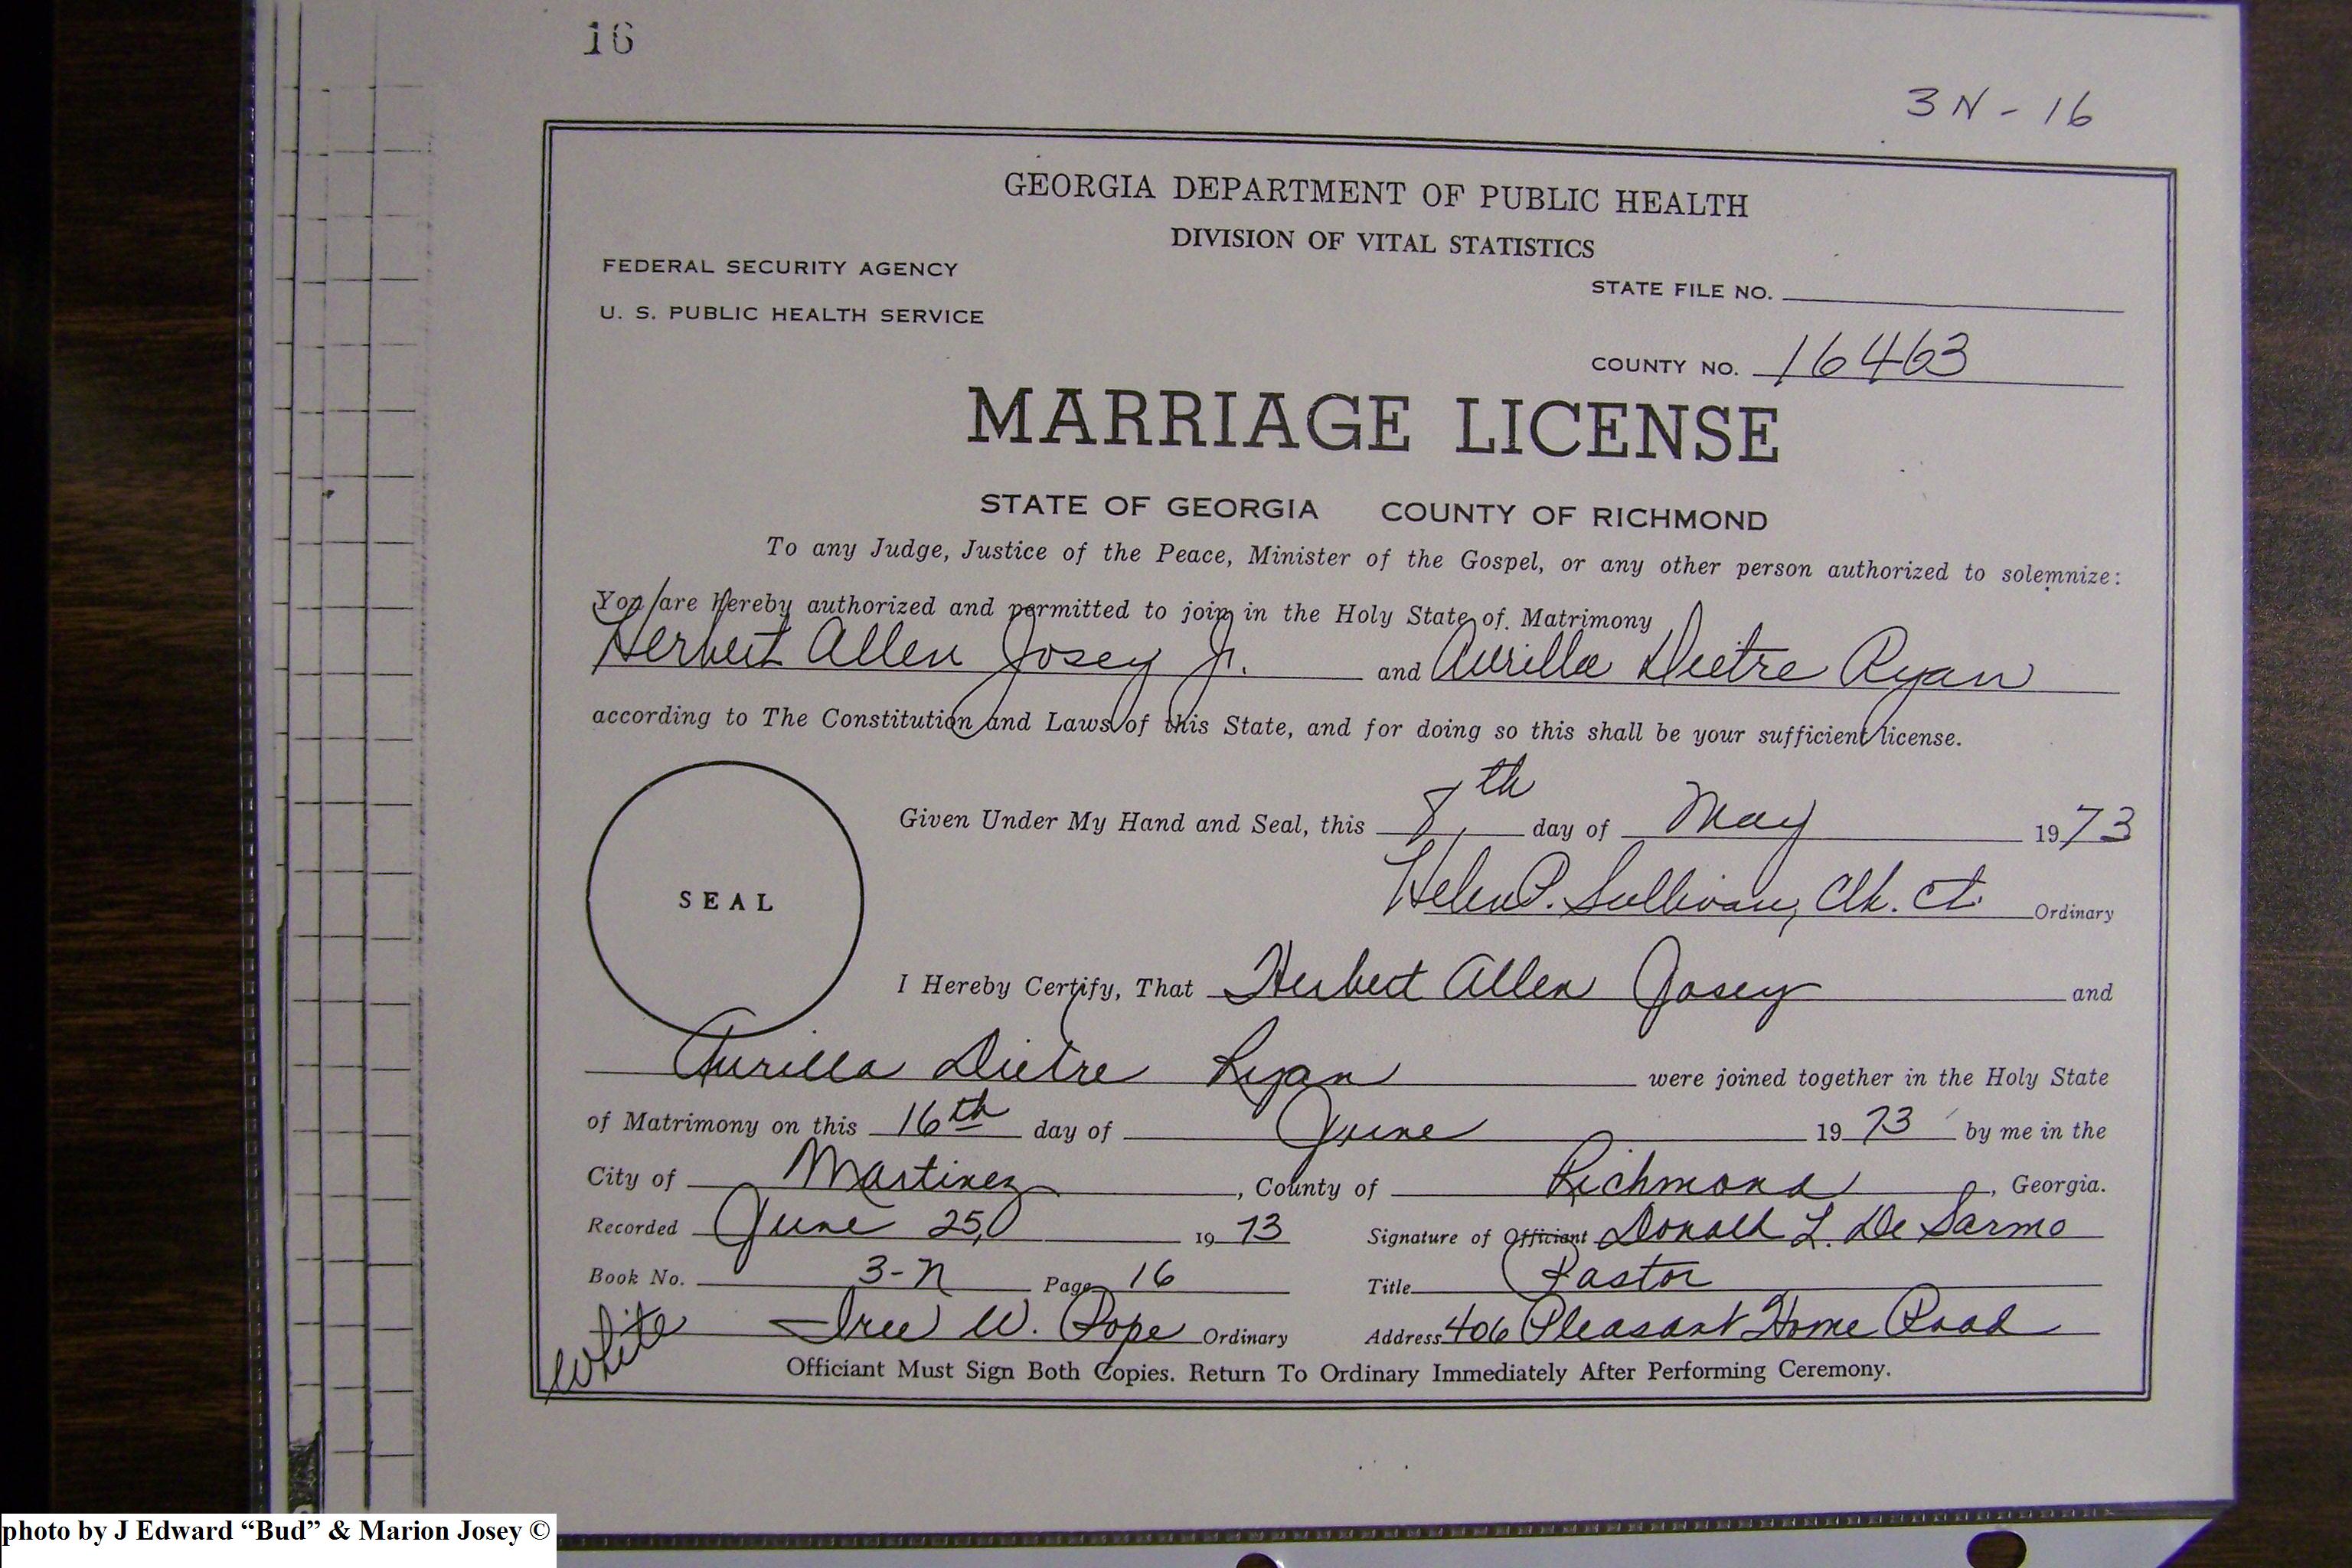 16
3N-16
GEORGIA DEPARTMENT OF PUBLIC HEALTH
DIVISION OF VITAL STATISTICS
FEDERAL SECURITY AGENCY
U. S. PUBLIC HEALTH SERVICE
STATE FILE NO.
COUNTY NO. 16463
MARRIAGE LICENSE
STATE OF GEORGIA COUNTY OF RICHMOND
To any Judge, Justice of the Peace, Minister of the Gospel, or any other person authorized to solemnize:
You are hereby authorized and permitted to join in the Holy State of Matrimony
Herbert Allen Josey Jr. and Aurilla Dietre Ryan
according to The Constitution and Laws of this State, and for doing so this shall be your sufficient license.
SEAL
Given Under My Hand and Seal, this 8th day of May 1973
Helen P. Sullivan, Clk. Ct. Ordinary
I Hereby Certify, That Herbert Allen Josey and
Aurilla Dietre Ryan were joined together in the Holy State
of Matrimony on this 16th day of June 1973 by me in the
City of Martinez, County of Richmond, Georgia.
Recorded June 25, 1973 Signature of Officiant Donald L. De Sarmo
Book No. 3-N Page 16 Title Pastor
White W. Pope Ordinary Address 406 Pleasant Home Road
Officiant Must Sign Both Copies. Return To Ordinary Immediately After Performing Ceremony.
photo by J Edward “Bud” & Marion Josey ©